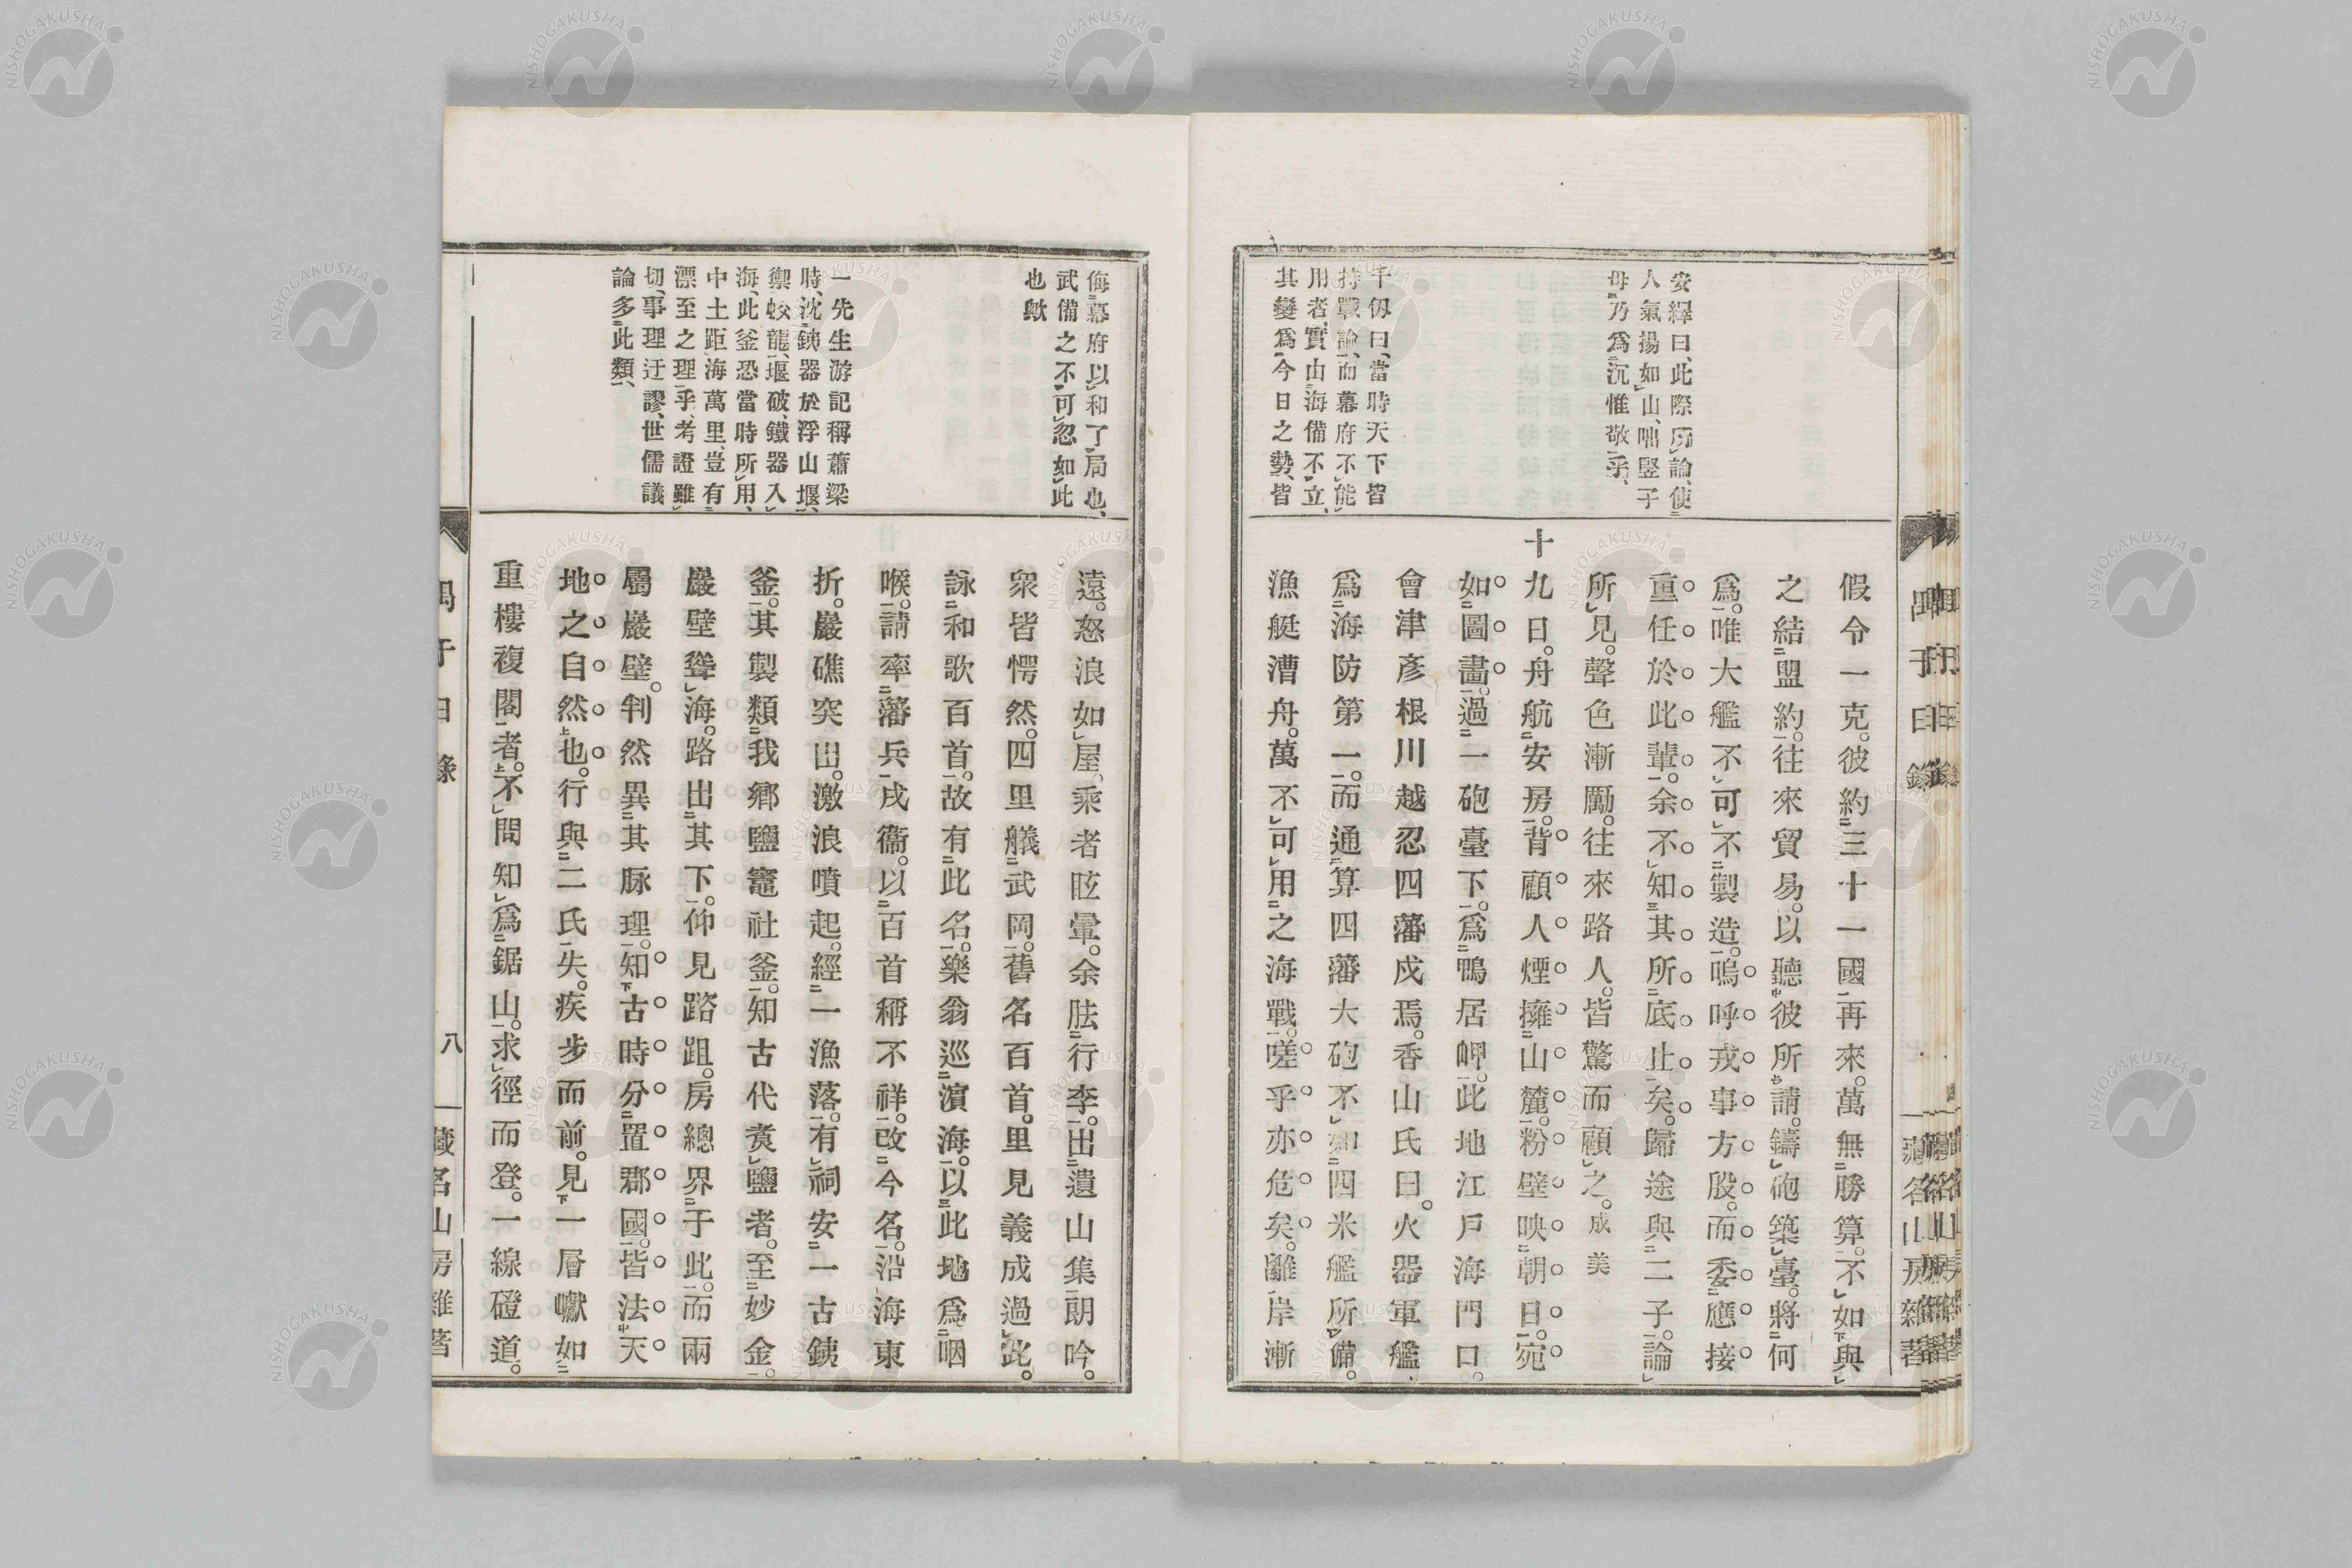 安繹曰、此際所論、使
人氣揚如山、咄豎子
毋乃爲沉惟敬乎、
千仭曰、當時天下皆
持戰論、而幕府不能
用者、實由海備不立、
其變爲今日之勢、皆
假令一克。彼約三十一國再來。萬無勝算。不如與
之結盟約。往來貿易。以聽彼所請。鑄砲築臺。將何
爲。唯大艦不可不製造。嗚呼戎事方殷。而委應接
重任於此輩。余不知其所底止矣。歸途與二子。論
所見。聲色漸勵。往來路人。皆驚而顧之。成美
十九日。舟航安房。背顧人煙擁山麓。粉壁映朝日。宛
如圖畫。過一砲臺下。爲鴨居岬。此地江戶海門口。
會津彥根川越忍四藩戍焉。香山氏曰。火器軍艦、
爲海防第一。而通算四藩大砲不如四米艦所備。
漁艇漕舟。萬不可用之海戰。嗟乎亦危矣。離岸漸
侮、幕府以和了局也、
武備之不可忽如此
也歟
一先生游記稱蕭梁
時、沈鐵器於浮山堰、
禦蛟龍、堰破、鐵器入
海、此釜恐當時所用、
中土距海萬里、豈有
漂至之理乎、考證雖
切、事理迂謬、世儒議
論多此類、
遠。怒浪如屋。乘者眩暈。余胠行李。出遺山集朗吟。
衆皆愕然。四里艤武岡。舊名百首。里見義成過此。
詠和歌百首。故有此名。樂翁巡濵海。以此地爲咽
喉。請率藩兵戍衞。以百首稱不祥。改今名。沿海東
折。巖礁突出。激浪噴起。經一漁落。有祠安一古銕
釜。其製類我鄉鹽竈社釜。知古代煑鹽者。至妙金。
巖壁聳海。路出其下。仰見踏跙。房總界于此。而兩
屬巖壁。判然異其脈理。知古時分置郡國。皆法天
地之自然也。行與二氏失。疾步而前。見一層巘如
重樓複閣者。不問知爲鋸山。求徑而登。一線磴道。
八
藏名山房雜著